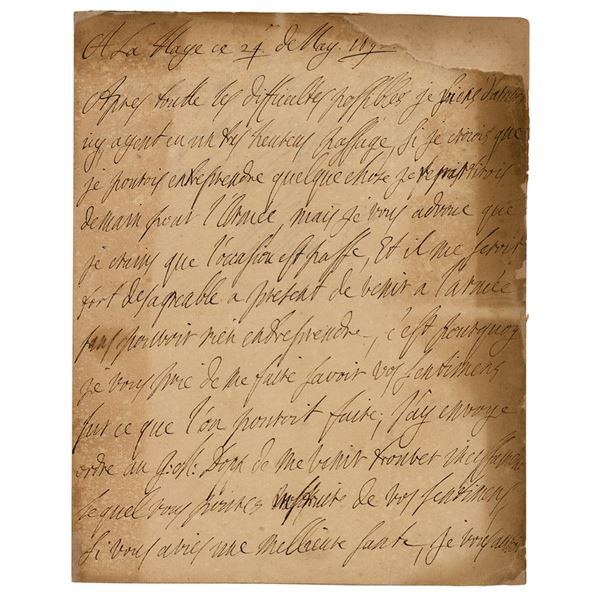 A La Haye ce 24 de May 169
Apres toutte les difficultes possibles je viens d'arriver
icy ayent eu un tres heureus passage, Si je croiois que
je pourois entreprendre quelque chose je repartirois
demain pour l'Armée, mais je vous advoue que
je crains que l'ocasion est passe, Et il me seroit
fort desagreable a present de venir a l'armée
sans pouvoir rien entreprendre, c'est pourquoy
je vous prie de me faire savoir vos sentimens
sur ce que l'on pouroit faire, J'ay envoye
ordre au Dopf de me venir trouver incessamen
lequel vous pouvez instruire de vos sentimens
Si vous avies une meilleure sante, je vous